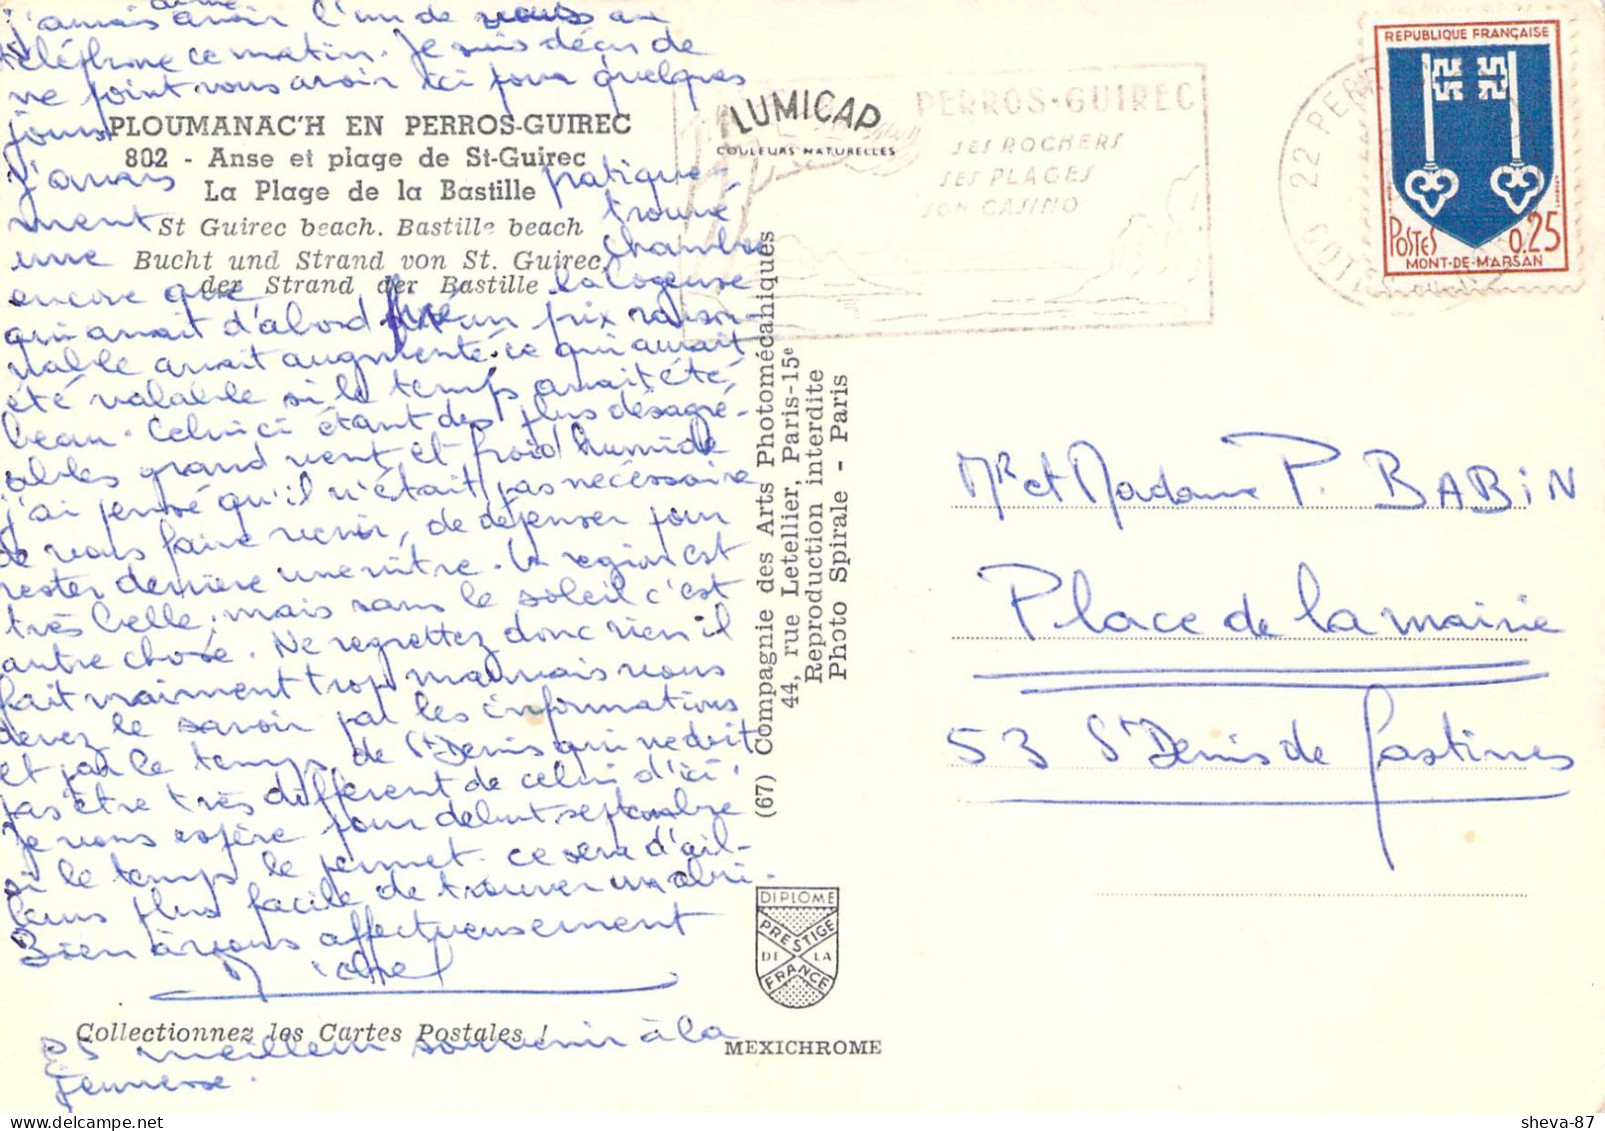 aimé
j'amais avoir l'un de vous au
téléphone ce matin. Je suis déçu de
ne point vous avoir ici pour quelques
jours
PLOUMANAC'H EN PERROS-GUIREC
802 - Anse et plage de St-Guirec
La Plage de la Bastille
St Guirec beach. Bastille beach
Bucht und Strand von St. Guirec,
der Strand der Bastille
j'avais pratique-
ment trouvé
une chambre
encore que la logeuse
qui avait d'abord fixé un prix raison-
nable avait augmenté. ce qui aurait
été valable si le temps avait été
beau. Celui ci étant des plus désagré-
ables grand vent et froid humide
j'ai pensé qu'il n'était pas nécessaire
de vous faire venir, de dépenser pour
rester derrière une vitre. La région est
très belle, mais sans le soleil c'est
autre chose. Ne regrettez donc rien il
fait vraiment trop mauvais vous
devez le savoir par les informations
et par le temps de St Denis qui ne doit
pas être très différent de celui d'ici.
Je vous espère pour début septembre
si le temps le permet. ce sera d'ail-
leurs plus facile de trouver un abri.
Bien à vous affectueusement
Michel
Collectionnez les Cartes Postales !
PS meilleur souvenir à la
jeunesse.
LUMICAP
COULEURS NATURELLES
PERROS-GUIREC
SES ROCHERS
SES PLAGES
SON CASINO
22 PERR
COTES
REPUBLIQUE FRANÇAISE
POSTES 0,25
MONT-DE-MARSAN
(67) Compagnie des Arts Photomécaniques
44, rue Letellier, Paris-15e
Reproduction interdite
Photo Spirale - Paris
Mr et Madame P. BABIN
Place de la mairie
53 St Denis de Gastines
DIPLOME
PRESTIGE
DE LA
FRANCE
MEXICHROME
sheva-87